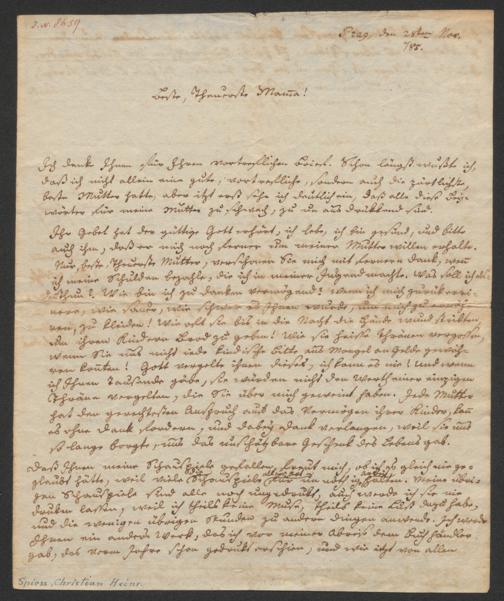 J.N. 8659
Prag, den 28ten Nov.
785.
Beste, Theuerste Mama!
Ich dank Ihnen für Ihren vortreflichen Brief. Schon längst wußte ich,
daß ich nicht allein eine gute, vortrefliche, sondern auch die zärtlichste,
beste Mutter hatte, aber itzt erst sehe ich deutlich ein, daß alle diese Bey-
wörter für meine Mutter zu schwach, zu un ausdrükend sind.
Ihr Gebet hat der gütige Gott erhört, ich lebe, ich bin gesund, und bitte
auch ihn, daß er mich noch ferner um meiner Mutter willen erhalte.
Nur, beste, Theuerste Mutter, verschonen Sie mich mit fernern Dank, wenn
ich meine Schulden bezahle, die ich in meiner Jugend machte. Was soll ich als
Wie bin ich zu danken vermögend? wenn ich mich zurükerin-
nere, wie sauer, wie schwer es Ihnen wurde, um mich zu ernäh-
ren, zu kleiden! Wie oft Sie bis in die Nacht die Hände wund strikten,
um ihren Kindern Brod zu geben! Wie sie heisse Thränen vergossen,
wenn Sie uns nicht jede kindische Bitte aus Mangel an Gelde gewäh-
ren konten! Gott vergelte ihnen dieses, ich kann es nie! Und wenn
ich Ihnen Tausende gäbe, sie würden nicht den Werth einer einzigen
Thräne vergelten, die Sie über mich geweint haben. Jede Mutter
hat den gerechtesten Anspruch auf das Vermögen ihrer Kinder, kann
es ohne Dank fordern, und dabey Dank verlangen, weil sie uns
so lange borgte, uns das unschätzbare Geschenk des Lebens gab.
Daß Ihnen meine Schauspiele gefallen, freut mich, ob ich es gleich nie ge-
glaubt hätte, weil viele Schauspiele für . Meine übri-
gen Schauspiele sind alle noch ungedrukt, auch werde ich sie nie
druken lassen, weil ich theils keine Muse, theils keine Lust dazu habe,
und die wenigen übrigen Stunden zu andern Dingen anwende. Ich werde
Ihnen ein anders Werk, das ich vor meiner Abreis dem Buchhändler
gab, das vorm Jahre schon gedrukt erschien, und wie itzt von allen
Spiess, Christian Heinr.